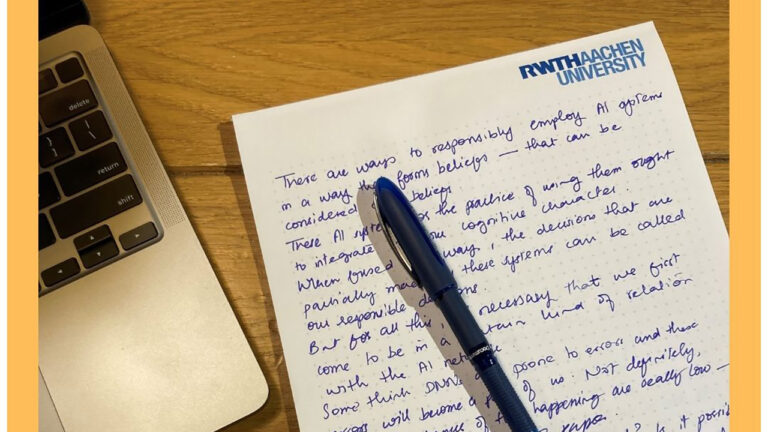 delete
return
shift
RWTHAACHEN
UNIVERSITY
There are ways to responsibly employ AI systems
in a way that forms beliefs — that can be
considered beliefs
These AI the practice of using them ought
to integrate our cognitive character.
When used way, the decisions that are
partially made these systems can be called
our responsible
But for all this, necessary that we first
come to be in a certain kind of relation
with the AI
Some think prone to errors and these
will become a of us. Not definitely,
of happening are really low —
it